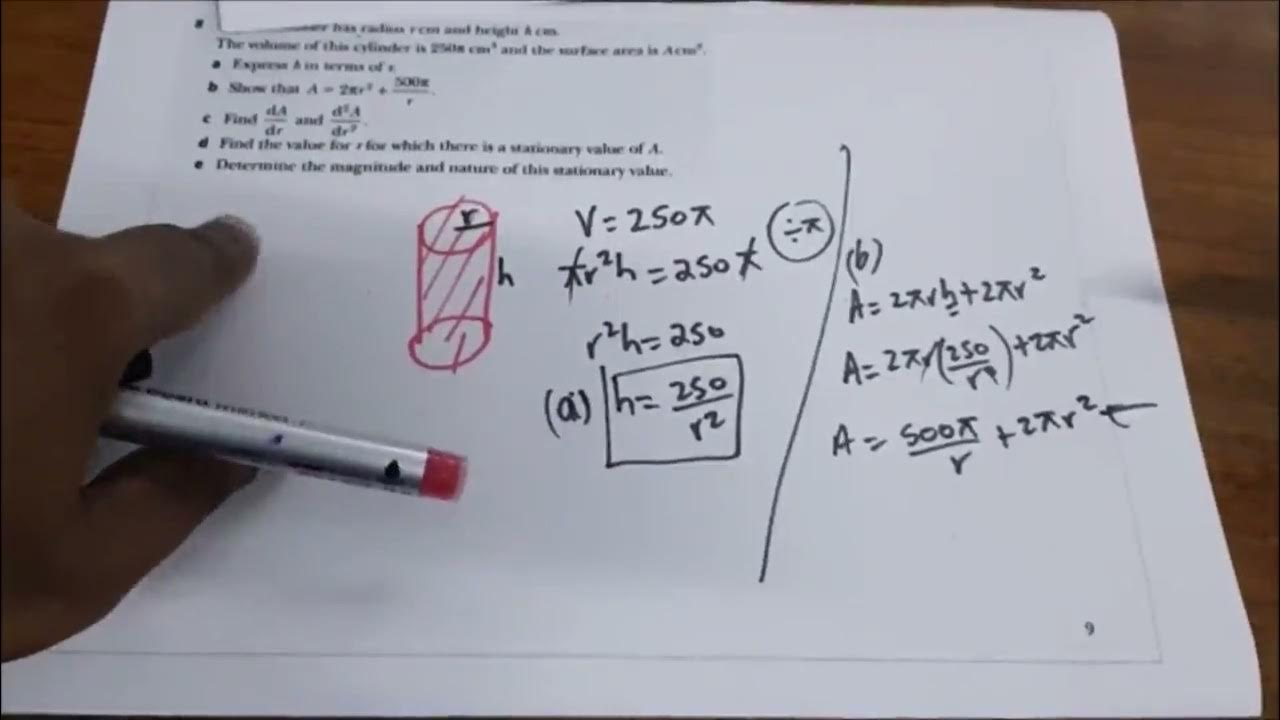 has radius r cm and height h cm.
The volume of this cylinder is 250π cm³ and the surface area is A cm².
a Express h in terms of r.
b Show that A = 2πr² + 500π/r.
c Find dA/dr and d²A/dr².
d Find the value for r for which there is a stationary value of A.
e Determine the magnitude and nature of this stationary value.
r
h
V = 250π
÷π
πr²h = 250π
r²h = 250
(a) h = 250/r²
(b)
A = 2πrh + 2πr²
A = 2πr(250/r²) + 2πr²
A = 500π/r + 2πr² ←
9